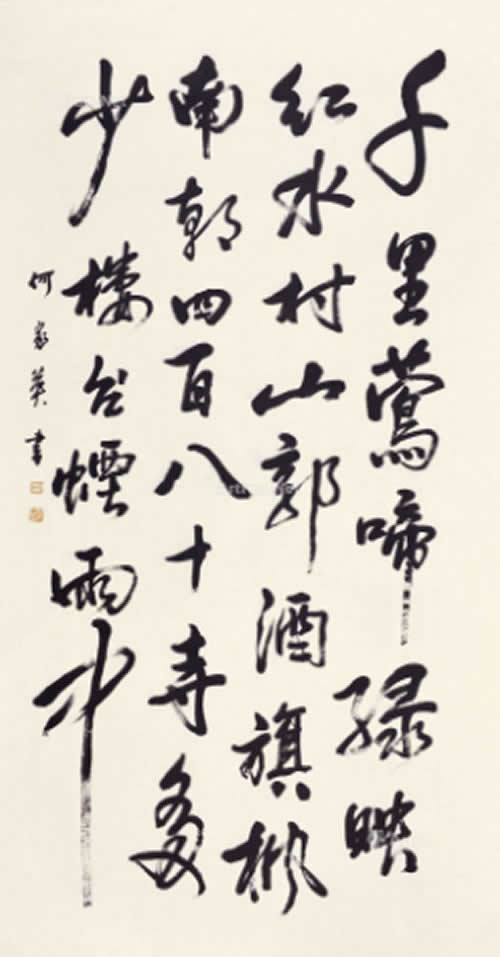 千里鶯啼緑映
紅水村山郭酒旗枫
南朝四百八十寺多
少樓台煙雨中
何家英書